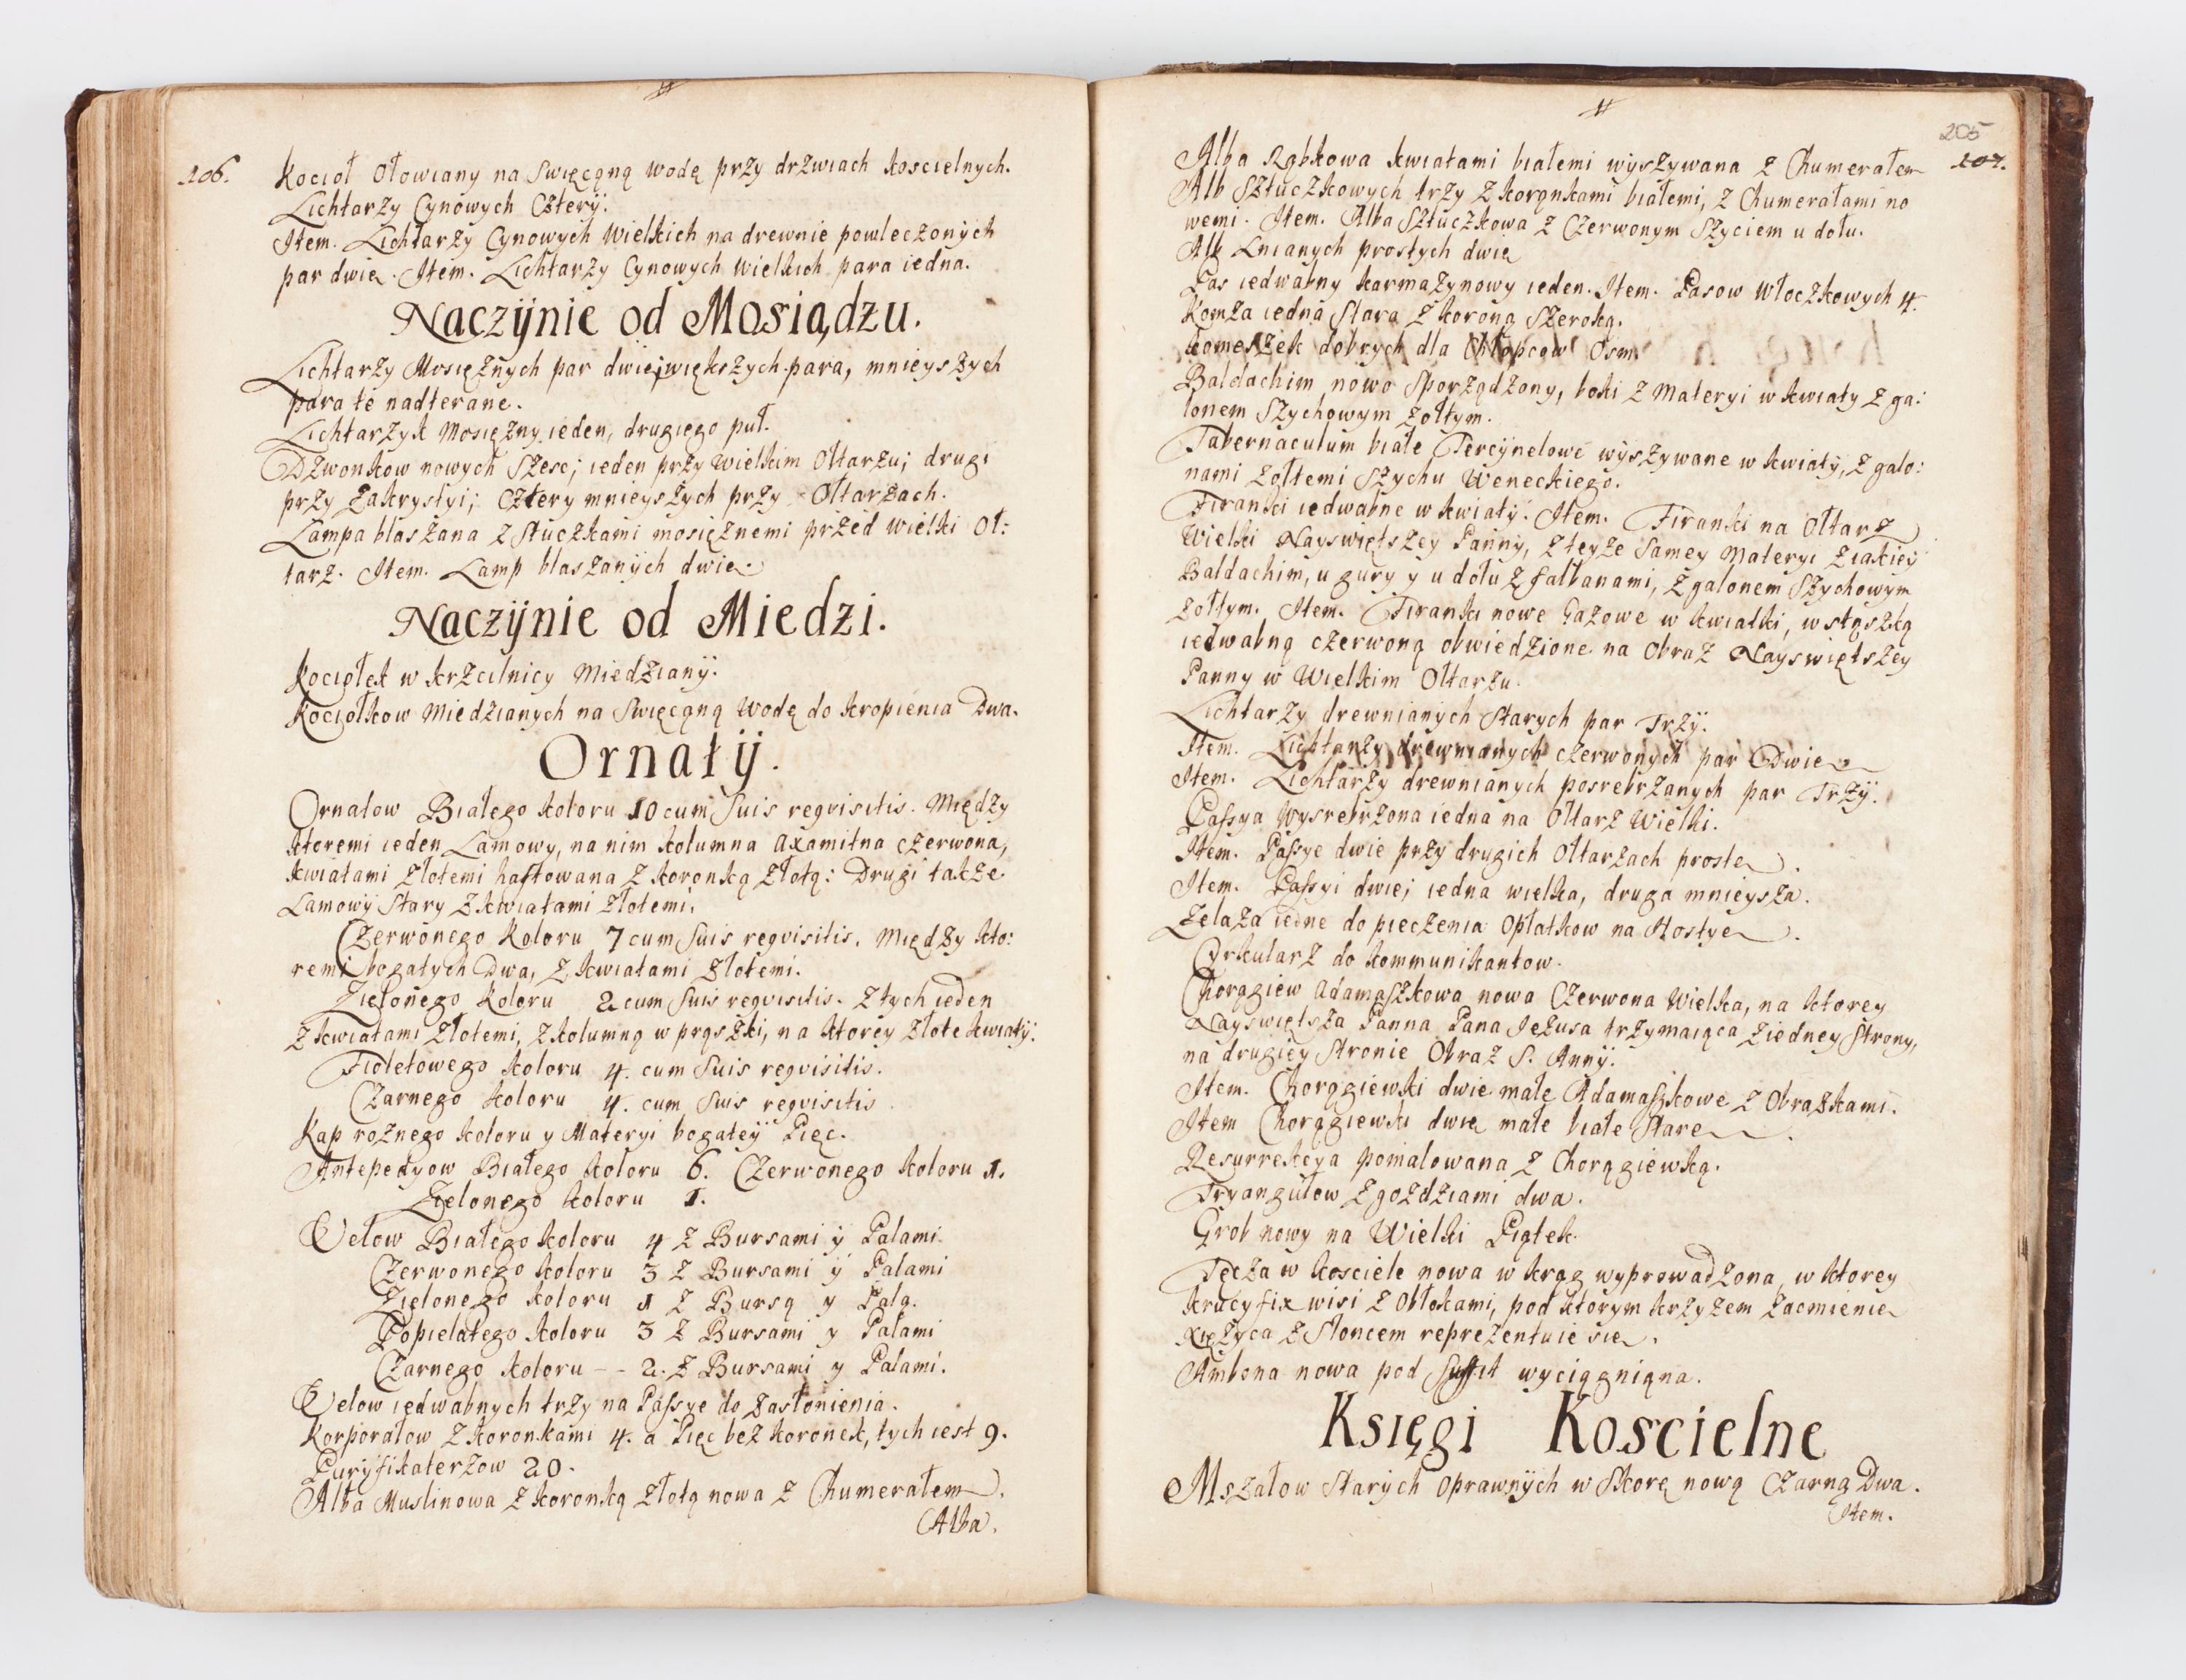 106.
Kocioł Ołowiany na Swięcąną Wodę przy drzwiach koscielnych.
Lichtarzy Cynowych Cztery.
Item. Lichtarzy Cynowych Wielkich na drewnie powleczonych
par dwie. Item. Lichtarzy Cynowych Wielkich para iedna.
Naczÿnie od Mosiądzu.
Lichtarzy Mosiężnych par dwie; większych para, mnieyszych
para te nadterane.
Lichtarzyk Mosiężny ieden, drugiego puł.
Dzwonkow nowych Szesc; ieden przy Wielkim Ołtarzu; drugi
przy Zakrystyi; Cztery mnieyszych przy Ołtarzach.
Lampa blaszana z Stuczkami mosięznemi przed Wielki Oł:
tarz. Item. Lamp blaszanych dwie.
Naczÿnie od Miedzi.
Kociołek w krzcilnicy Miedziany.
Kociołkow Miedzianych na Swięcąną Wodę do kropienia Dwa.
Ornatÿ.
Ornatow Białego koloru 10 cum Suis reqvisitis. Między
ktoremi ieden Lamowy, na nim kolumna axamitna czerwona,
kwiatami złotemi haftowana z koronką złotą: Drugi także
Lamowy Stary z kwiatami złotemi.
Czerwonego Koloru 7 cum Suis reqvisitis. Między kto:
remi bogatych Dwa, z kwiatami złotemi.
Zielonego Koloru 2 cum Suis reqvisitis. Z tych ieden
z kwiatami złotemi, z kolumną w prązki, na ktorey złote kwiaty.
Fioletowego koloru 4. cum Suis reqvisitis.
Czarnego koloru 4. cum Suis reqvisitis
Kap roznego koloru y Materyi bogatey Pięc.
Antepedyow Białego koloru 6. Czerwonego koloru 1.
Zielonego koloru 1.
Velow Białego koloru 4 z Bursami ÿ Palami.
Czerwonego koloru 3 z Bursami ÿ Palami
Zielonego koloru 1 z Bursą y Palą.
Popielatego koloru 3 z Bursami y Palami
Czarnego koloru - - 2. z Bursami y Palami.
Velow iedwabnych trzy na Passye do zasłonienia.
Korporałow z koronkami 4. a Pięc bez koronek, tych iest 9.
Puryfikaterzow 20.
Alba Muslinowa z koronką złotą nowa z Chumerałem.
Alba.
205
107.
Alba Rąbkowa kwiatami białemi wyszywana z Chumerałem
Alb Sztuczkowych trzy z korąnkami białemi, z Chumerałami no
wemi. Item. Alba Sztuczkowa z Czerwonym Szyciem u dołu.
Alb Lnianych prostych dwie
Pas iedwabny karmazynowy ieden. Item. Pasow Włoczkowych 4.
Komża iedna Stara z koroną Szeroką.
Komeszek dobrych dla Chłopcow Osm.
Baldachim nowo Sporządzony, boki z Materyi w kwiaty z ga:
lonem Szychowym żołtym.
Tabernaculum białe Tercynelowe wyszywane w kwiaty, z galo:
nami żołtemi Szychu Weneckiego.
Firanki iedwabne w kwiaty. Item. Firanki na Ołtarz
Wielki Nayswiętszey Panny, z teyze Samey Materyi z iakiey
Baldachim, u gury y u dołu z falbanami, z galonem Szychowym
żołtym. Item. Firanki nowe Gazowe w kwiatki, wstąszką
iedwabną czerwoną obwiedzione na Obraz Nayswiętszey
Panny w Wielkim Ołtarzu.
Lichtarzy drewnianych Starych par Trzÿ.
Item. Lichtarzy drewnianych czerwonych par Dwie
Item. Lichtarzy drewnianych posrebrzanych par Trzÿ.
Passya Wysrebrzona iedna na Ołtarz Wielki.
Item. Passye dwie przy drugich Ołtarzach proste.
Item. Passyi dwie; iedna wielka, druga mnieysza.
Zelaza iedne do pieczenia Opłatkow na Hostye.
Cyrkularz do kommunikantow.
Chorągiew adamaszkowa nowa Czerwona Wielka, na ktorey
Nayswiętsza Panna Pana Jezusa trzymaiąca z iedney Strony,
na drugiey Stronie Obraz S. Anny.
Item. Chorągiewki dwie małe Adamaszkowe z Obrazkami.
Item Chorągiewki dwie małe białe Stare.
Resurrekcya pomalowana z Chorągiewką.
Tryangułow z gozdziami dwa.
Grob nowy na Wielki Piątek.
Tęcza w kosciele nowa w krąg wyprowadzona, w ktorey
krucyfix wisi z Obłokami, pod ktorym krzyzem zacmienie
xiężyca z Słoncem reprezentuie się.
Ambona nowa pod Suffit wyciągniąna.
Księgi Koscielne
Mszałow Starych Oprawnych w Skorę nową Czarną Dwa.
Item.